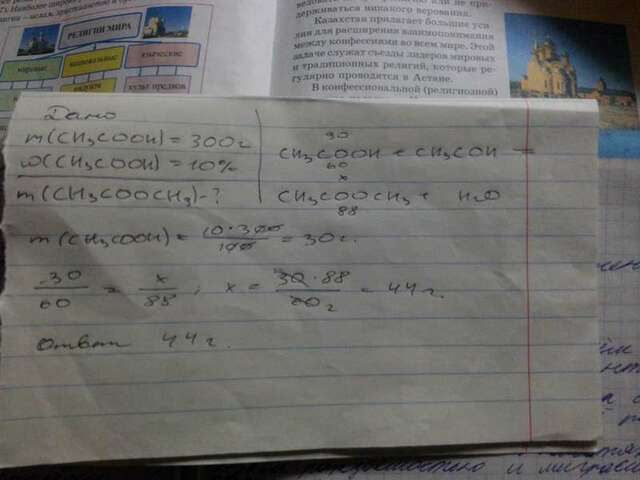 РЕЛИГИИ МИРА
мировые
национальные
языческие
культ предков
держиваться никакого верования.
Казахстан прилагает большие уси-
лия для расширения взаимопонимания
между конфессиями во всем мире. Этой
задаче служат съезды лидеров мировых
и традиционных религий, которые ре-
гулярно проводятся в Астане.
В конфессиональной (религиозной)
Дано
m(CH3COOH) = 300г
ω(CH3COOH) = 10%
m(CH3COOCH3) - ?
30
CH3COOH + CH3COH =
60
x
CH3COOCH3 + H2O
88
m(CH3COOH) = 10·300/100 = 30г.
30/60 = x/88; x = 30·88/60 2 = 44г.
Ответ 44г.